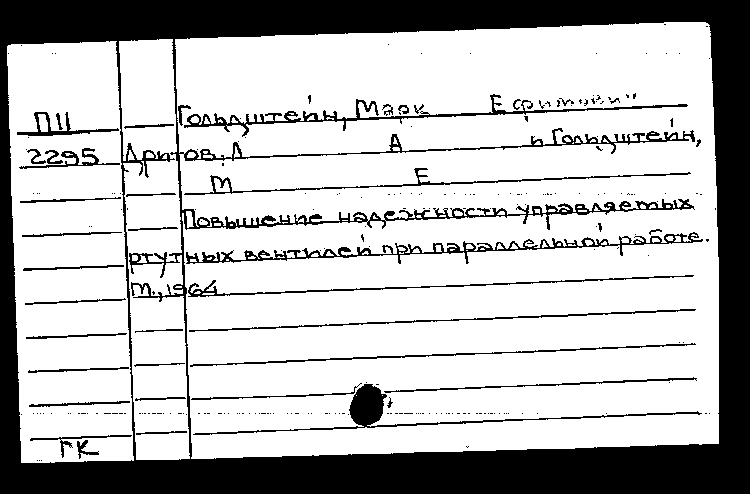 П11 Гольдштейн, Марк Ефимович
2295 Дритов, Л А и Гольдштейн,
М Е
Повышение надежности управляемых
ртутных вентилей при параллельной работе.
М., 1964
ГК